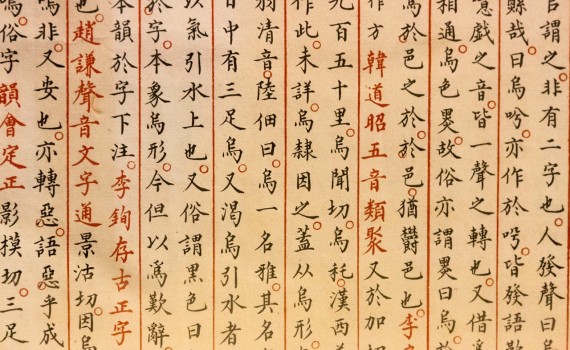 謂之。非有二字也。人發聲曰烏
縣哉。曰烏。亦作於。皆發語歎
戲之音。皆一聲之轉也。又借
相通。烏色黑。故俗亦謂黑曰烏。
於邑之於。於邑。猶鬱邑也。李
作方韓道昭五音類聚又於加切
九百五十里。烏聞切。烏秅。漢西
作此。未詳。烏隸因之。蓋从烏形
羽清音。陸佃曰。烏一名雅。其名
日中有三足烏。又渴烏引水者
以氣引水上也。又俗謂黑色曰
於字。本象烏形。今但以爲歎辭
本韻於字下注。李銁存古正字
也。趙謙聲音文字通景沽切。因烏
嗚非。又安也。亦轉惡。語惡乎成
嗚。俗字韻會定正影摸切。三足